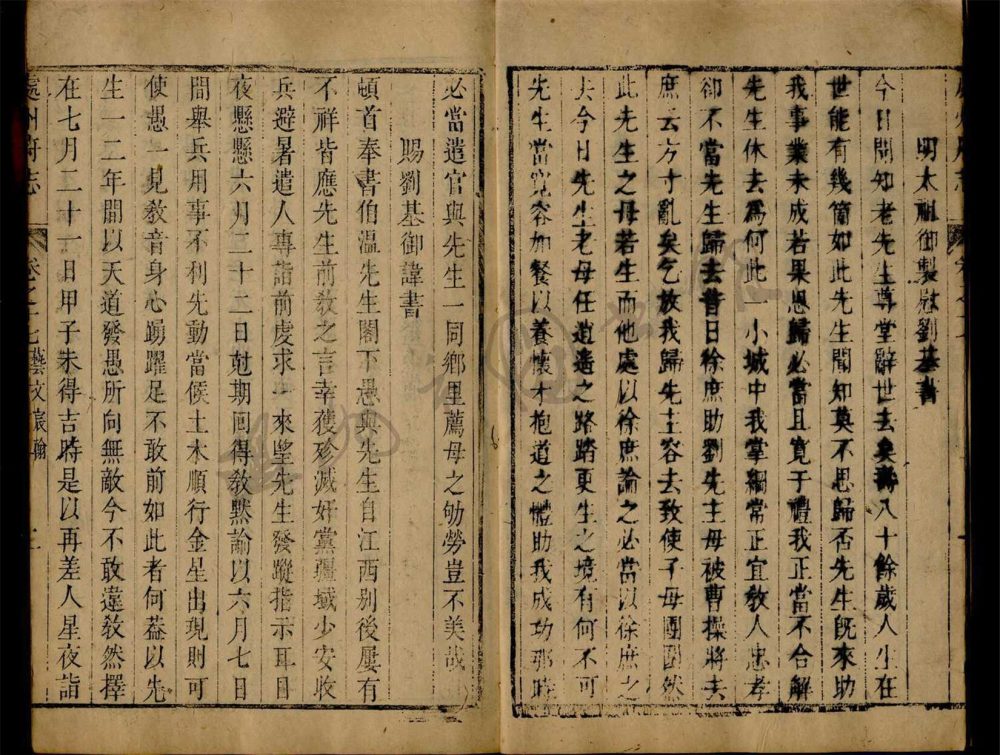 明太祖御製慰劉基書
今日聞知老先生尊堂辭世去矣壽八十餘歲人生在
世能有幾箇如此先生聞知莫不思歸否先生旣來助
我事業未成若果思歸必當且寬于禮我正當不合解
先生休去爲何此一小城中我掌綱常正宜敎人忠孝
卻不當先生歸去昔日徐庶助劉先主母被曹操將去
庶云方寸亂矣乞放我歸先主容去致使子母團圓然
此先生之母若生而他處以徐庶論之必當以徐庶之
去今日先生老母任逍遙之路踏更生之境有何不可
先生當寬容加餐以養懷才抱道之體助我成功那時
必當遣官與先生一同鄉里薦母之劬勞豈不美哉
賜劉基御諱書
頓首奉書伯溫先生閣下愚與先生自江西别後屢有
不祥皆應先生前敎之言幸獲殄滅奸黨疆域少安收
兵避暑遣人專詣前處求一來望先生發蹤指示耳目
夜懸懸六月二十二日尅期囘得敎黙論以六月七日
間舉兵用事不利先動當候土木順行金星出現則可
使愚一見敎音身心踴躍足不敢前如此者何葢以先
生一二年間以天道發愚所向無敵今不敢違敎然擇
在七月二十一日甲子未得吉時是以再差人星夜詣
處州府志
卷之十七藝文宸翰
二